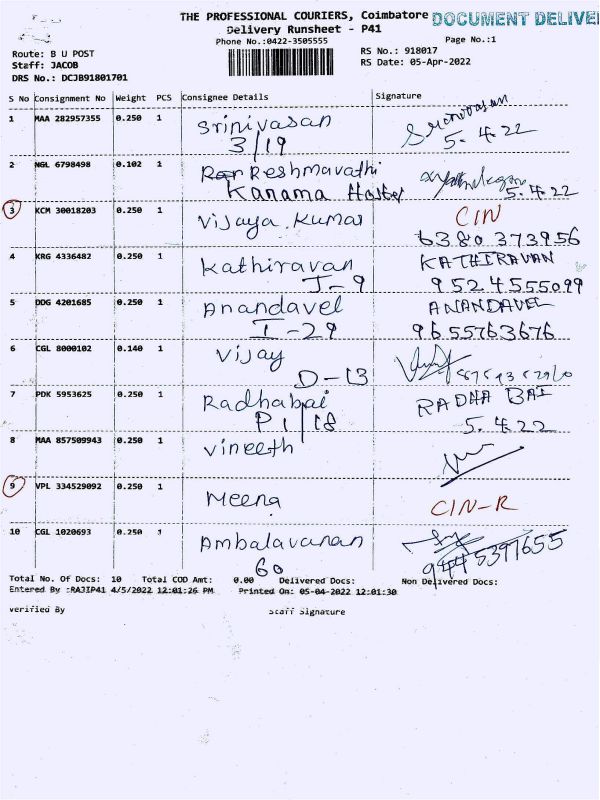 THE PROFESSIONAL COURIERS, Coimbatore
DOCUMENT DELIVE
Delivery Runsheet - P41
Phone No.:0422-3505555
Page No.:1
Route: B U POST
RS No.: 918017
Staff: JACOB
RS Date: 05-Apr-2022
DRS No.: DCJB91801701
S No Consignment No Weight PCS Consignee Details Signature
1 MAA 282957355 0.250 1 Srinivasan Srinivasan
3/19 5.4.22
2 NGL 6798498 0.102 1 Reshmavathi
Kanama Hostel 5.4.22
3 KCM 30018203 0.250 1 Vijaya Kumar CIN
6380373956
4 KRG 4336482 0.250 1 Kathiravan KATHIRAVAN
J-9 9524555099
5 DDG 4201685 0.250 1 Anandavel ANANDAVEL
I-29 9655763676
6 CGL 8000102 0.140 1 Vijay
D-13
7 PDK 5953625 0.250 1 Radhabai RADHA BAI
P1/18 5.4.22
8 MAA 857509943 0.250 1 Vineeth
9 VPL 334529092 0.250 1 Meena CIN-R
10 CGL 1020693 0.250 1 Ambalavanan
60 9445397655
Total No. Of Docs: 10 Total COD Amt: 0.00 Delivered Docs: Non Delivered Docs:
Entered By :RAJIP41 4/5/2022 12:01:26 PM Printed On: 05-04-2022 12:01:30
verified By Staff Signature